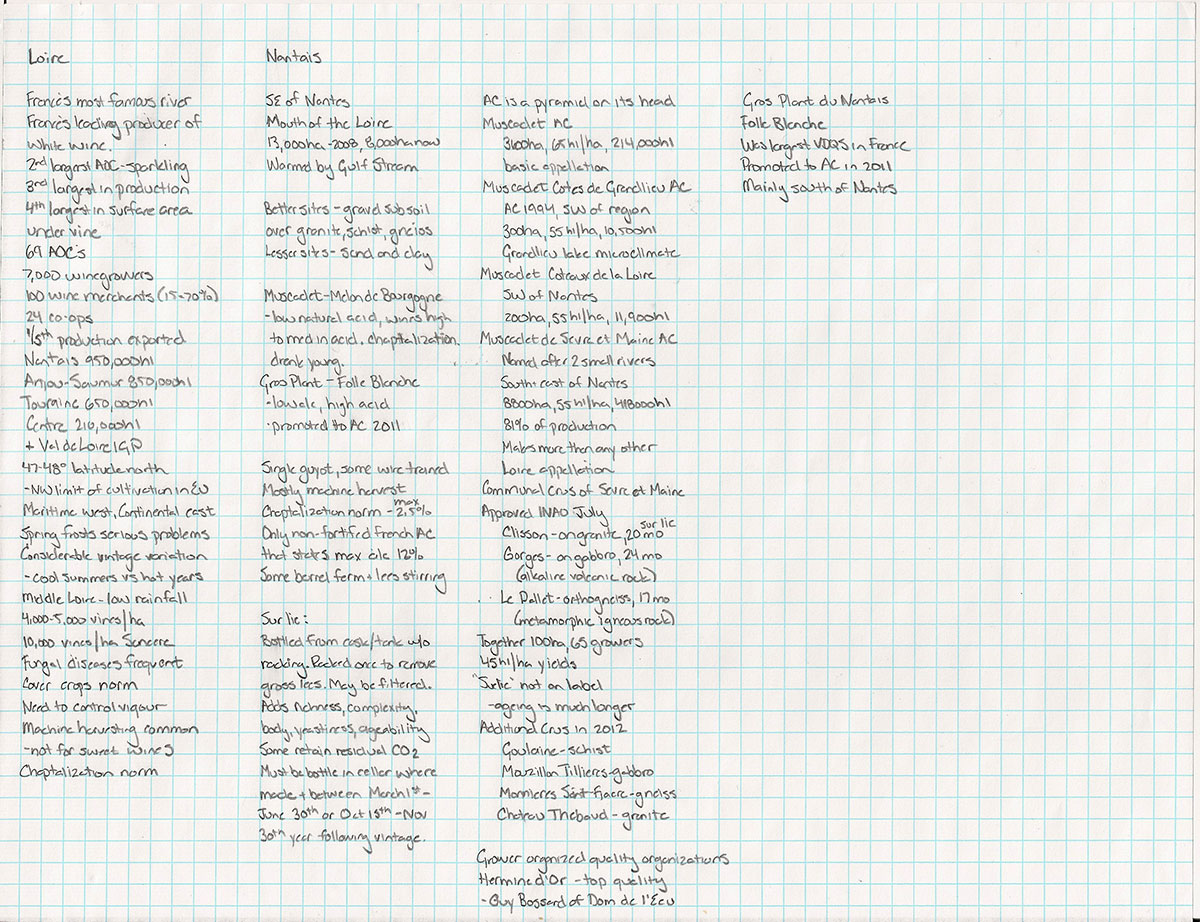 Loire
France's most famous river
France's leading producer of
white wine.
2nd largest AOC - sparkling
3rd largest in production
4th largest in surface area
under vine
69 AOC's
7,000 winegrowers
100 wine merchants (15-70%)
24 co-ops
1/5th production exported
Nantais 950,000hl
Anjou-Saumur 850,000hl
Touraine 650,000hl
Centre 210,000hl
+ Val de Loire IGP
47-48° latitude north
-NW limit of cultivation in EU
Maritime west, Continental east
Spring frosts serious problems
Considerable vintage variation
-cool summers vs hot years
Middle Loire - low rainfall
4,000-5,000 vines/ha
10,000 vines/ha Sancerre
Fungal diseases frequent
Cover crops norm
Need to control vigour
Machine harvesting common
-not for sweet wines
Chaptalization norm
Nantais
SE of Nantes
Mouth of the Loire
13,000ha-2008, 8,000ha now
Warmed by Gulf Stream
Better sites - gravel subsoil
over granite, schist, gneios
Lesser sites - sand and clay
Muscadet - Melon de Bourgogne
-low natural acid, wines high
to med in acid. chaptalization.
drank young.
Gros Plant - Folle Blanche
-low alc, high acid
·promoted to AC 2011
Single guyot, some wire trained
Mostly machine harvest
Chaptalization norm - max 2.5%
Only non-fortified french AC
that states max alc 12%
Some barrel ferm + lees stirring
Sur lie:
Bottled from cask/tank w/o
racking. Racked once to remove
gross lees. May be filtered.
Adds richness, complexity,
body, yeastiness, ageability
Some retain residual CO2
Must be bottle in cellar where
made + between March 1st -
June 30th or Oct 15th - Nov
30th year following vintage.
AC is a pyramid on its head
Muscadet AC
3100ha, 65hl/ha, 214,000hl
basic appellation
Muscadet Cotes de Grandlieu AC
AC 1994, SW of region
300ha, 55hl/ha, 10,500hl
Grandlieu lake microclimate
Muscadet Coteaux de la Loire
SW of Nantes
200ha, 55hl/ha, 11,900hl
Muscadet de Sevre et Maine AC
Named after 2 small rivers
South east of Nantes
8800ha, 55hl/ha, 418000hl
81% of production
Makes more then any other
Loire appellation
Communal Crus of Sevre et Maine
Approved INAO July
Clisson - on granite, 20 mo sur lie
Gorges - on gabbro, 24 mo
(alkaline volcanic rock)
Le Pallet - orthogneiss, 17 mo
(metamorphic igneous rock)
Together 100ha, 65 growers
45hl/ha yields
"Sur lie" not on label
-ageing is much longer
Additional Crus in 2012
Goulaine - schist
Mouzillon Tillieres - gabbro
Monnieres Saint Fiacre - gneiss
Chateau Thebaud - granite
Grower organized quality organizations
Hermine d'Or - top quality
-Guy Bossard of Dom de l'Ecu
Gros Plant du Nantais
Folle Blanche
Was largest VDQS in France
Promoted to AC in 2011
Mainly south of Nantes